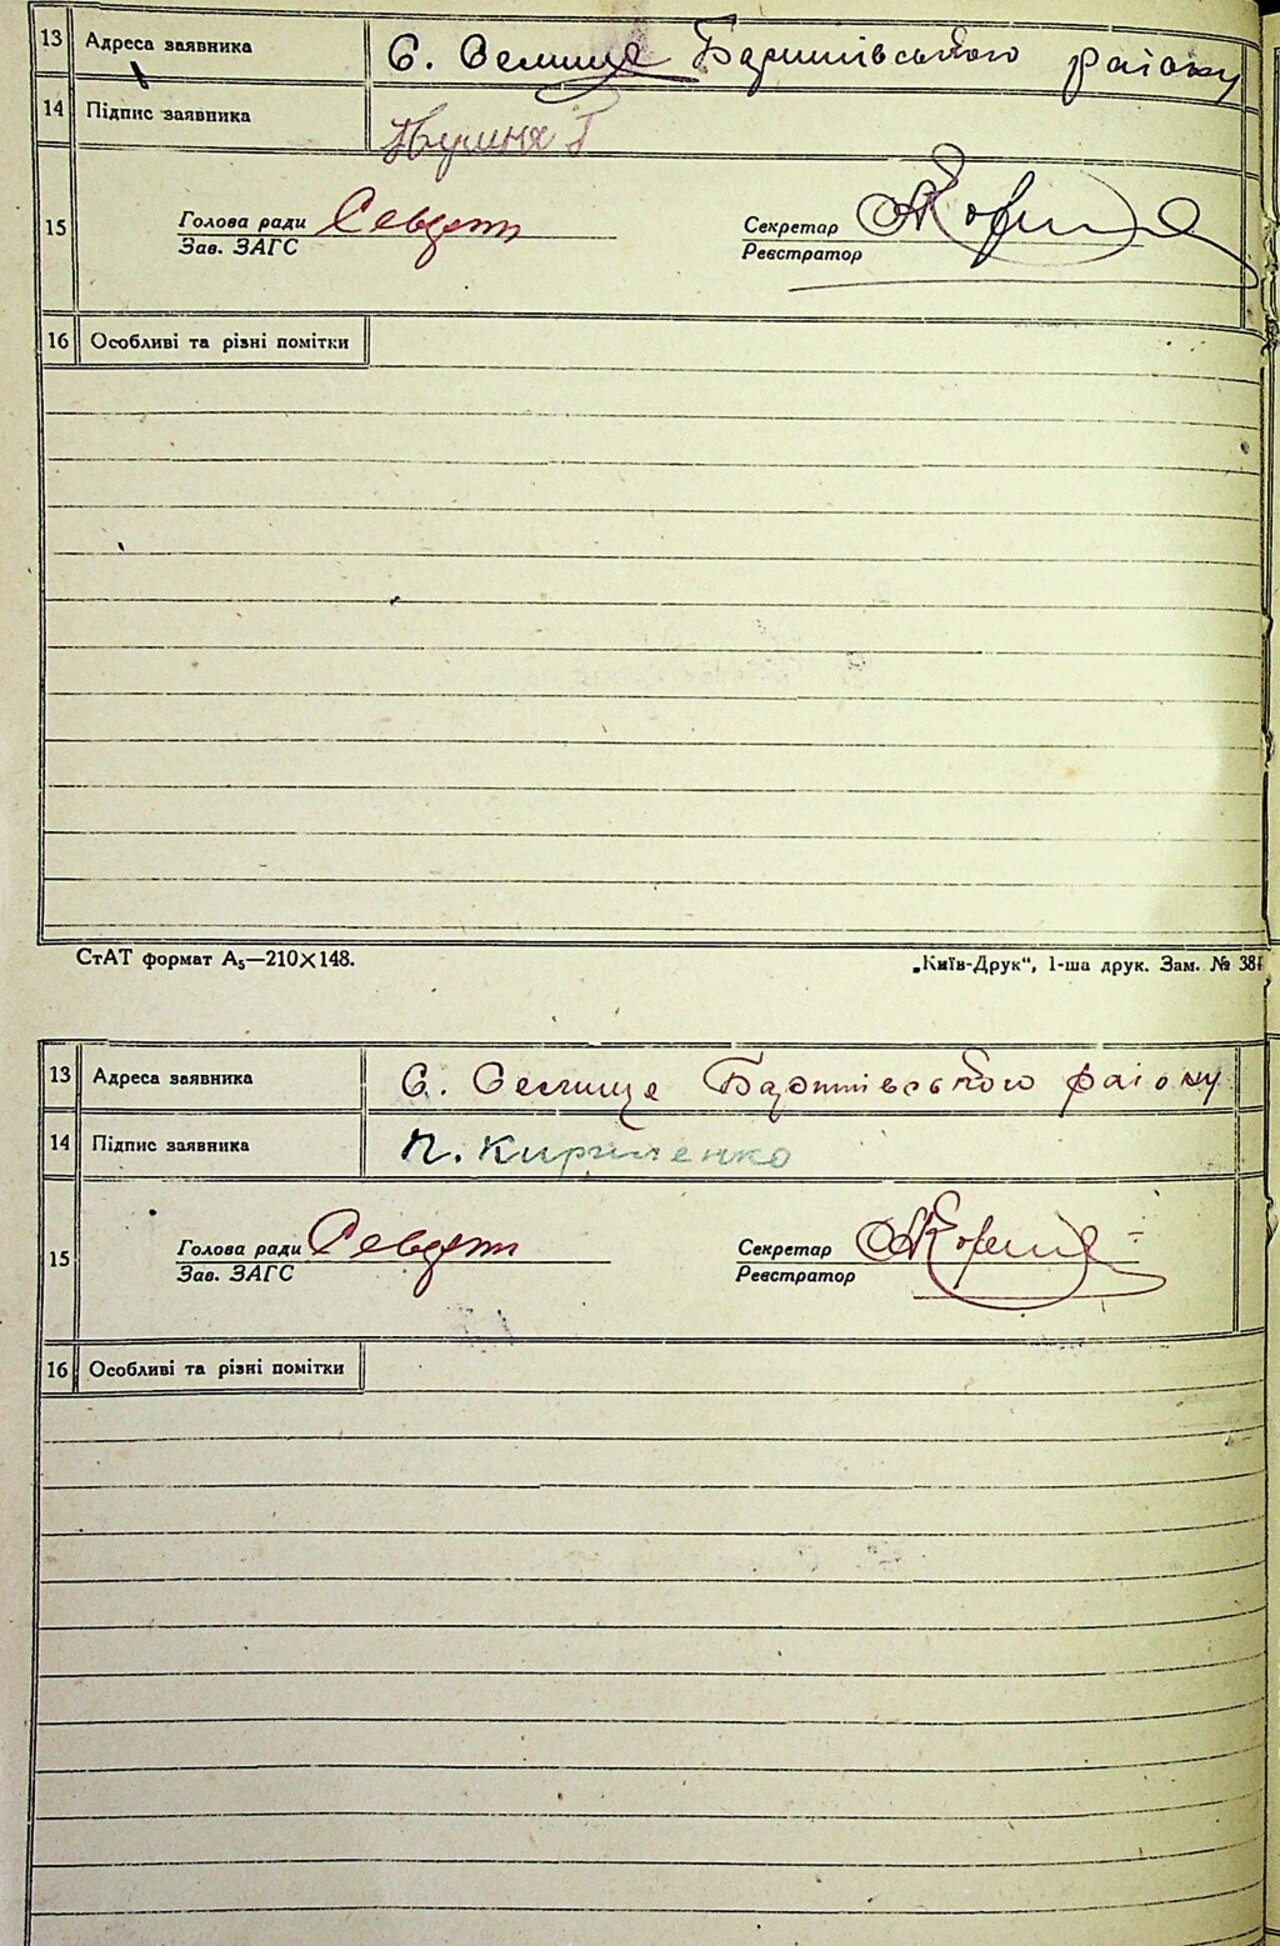 13 Адреса заявника С. Селище Баришівського району
14 Підпис заявника
15 Голова ради Секретар
Зав. ЗАГС Реєстратор
16 Особливі та різні помітки
СтАТ формат А₅—210×148. „Київ-Друк“, 1-ша друк. Зам. № 381
13 Адреса заявника С. Селище Баришівського району
14 Підпис заявника П. Кириленко
15 Голова ради Секретар
Зав. ЗАГС Реєстратор
16 Особливі та різні помітки